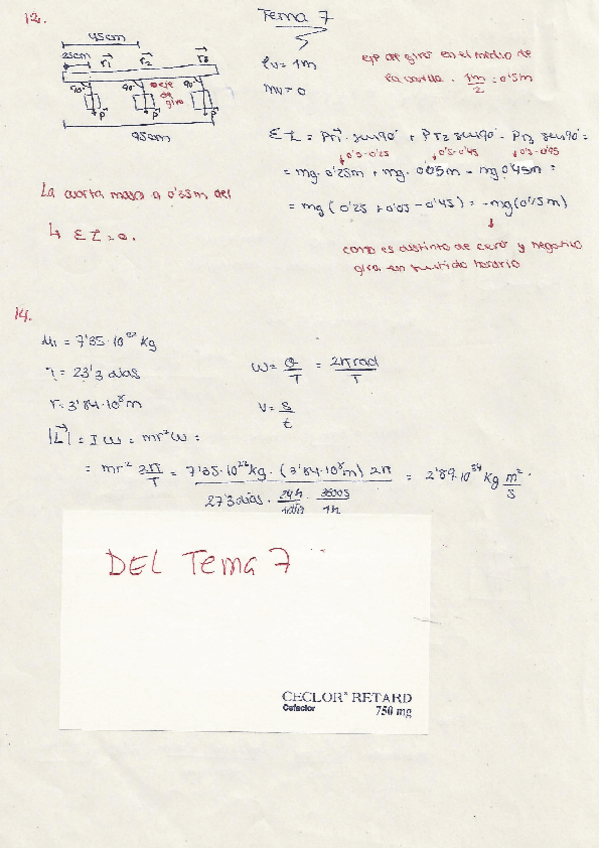 12.
Tema 7
45cm
25cm r₁ r₂ r₃
90° 90° eje de giro 90°
P P P
95cm
lv = 1m
mv = 0
eje de giro en el medio de
la varilla. 1m/2 = 0'5m
Σ τ = Pr₁ · sen90° + Pr₂ sen90° - Pr₃ sen90° =
0'5-0'25 0'5-0'45 0'5-0'95
= mg · 0'25m + mg · 0'05m - mg 0'45m =
= mg (0'25 + 0'05 - 0'45) = -mg(0'15m)
La cuarta masa a 0'35m del
↳ Σ τ = 0.
como es distinto de cero y negativo
gira en sentido horario
14.
= 7'35·10²² kg
= 27'3 días
r = 3'84·10⁸ m
|L| = I ω = mr²ω =
ω = θ/T = 2π rad/T
v = s/t
= mr² 2π/T = 7'35·10²² kg · (3'84·10⁸ m) 2π / 27'3 días · 24h/1día · 3600s/1h = 2'89·10³⁴ kg m²/s
DEL Tema 7
CECLOR® RETARD
Cefaclor 750 mg